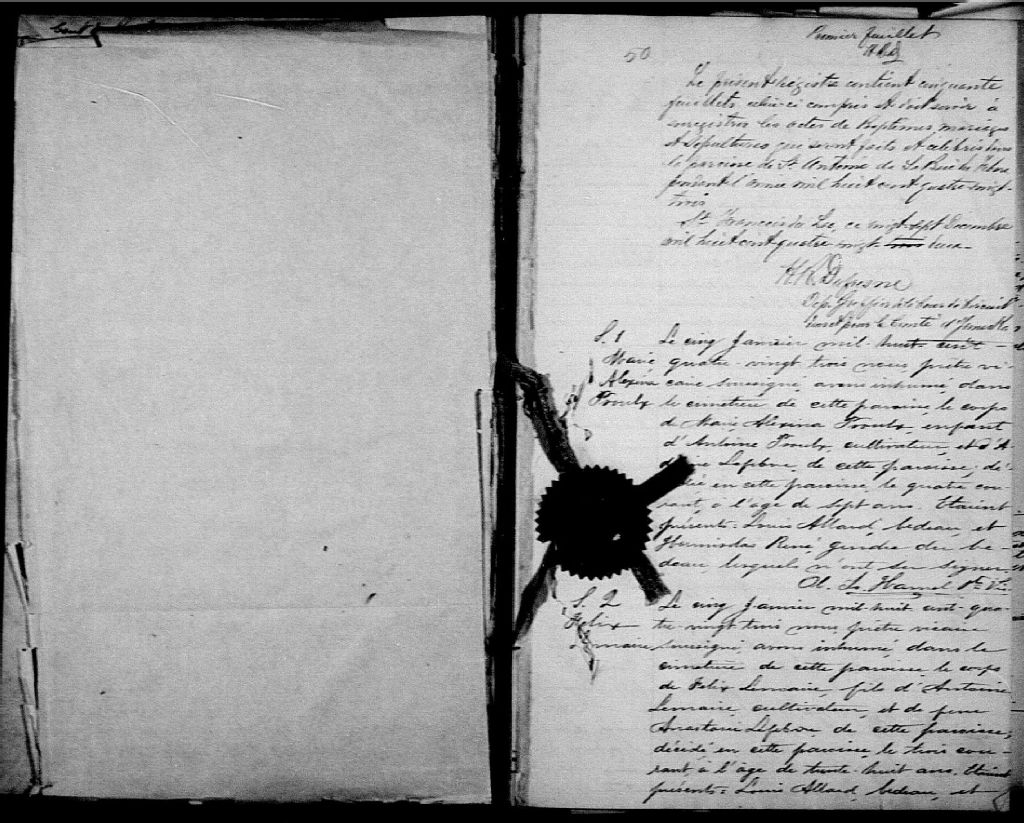 50
Premier feuillet
Le présent régistre contient cinquante
feuillets celui-ci compris et doit servir à
enregistrer les actes de Baptêmes, mariages
et sépultures qui seront faits et célébrés dans
la paroisse de St Antoine de La Baie du Febvre
pendant l'année mil huit cent quatre vingt-
trois
St François du Lac, ce vingt-sept Décembre
mil huit cent quatre vingt- trois deux-
Dep. Greffier de la Cour de Circuit
dans et pour le Comté d'Yamaska
S. 1
Marie
Alexina
Proulx
Le cinq Janvier mil-huit-cent-
quatre vingt trois nous, prêtre vi-
caire soussigné, avons inhumé, dans
le cimetière de cette paroisse le corps
de Marie Alexina Proulx enfant
d'Antoine Proulx, cultivateur, et d'A-
Lefebvre, de cette paroisse, dé-
en cette paroisse, le quatre cou-
rant, à l'âge de sept ans. Etaient
présents: Louis Allard, bedeau, et
Hermisdas René, gendre du be-
deau, lesquels n'ont su signer.
Hamel Ptre Vic.
S. 2
Felix
Lemaire
Le cinq Janvier mil-huit cent-qua-
tre-vingt trois nous, prêtre vicaire
soussigné, avons inhumé, dans le
cimetière de cette paroisse le corps
de Felix Lemaire, fils d'Antoine
Lemaire cultivateur, et de feue
Anastasie Lefebvre de cette paroisse,
décédé en cette paroisse, le trois cou-
rant, à l'âge de trente-huit ans. Etaient
présents: Louis Allard, bedeau, et